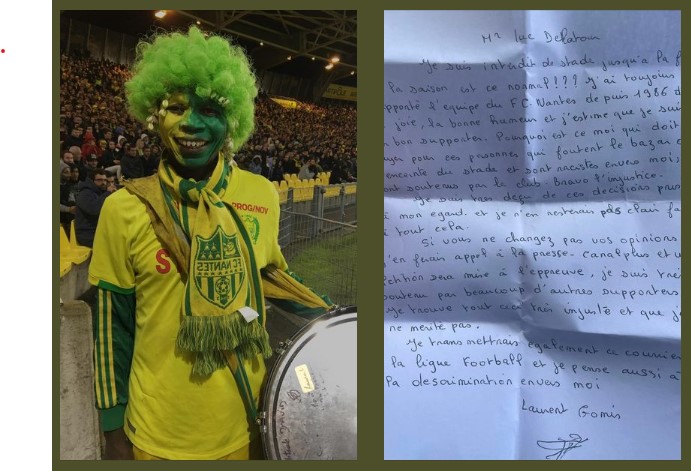 PROGINOV
FC NANTES
Mr Luc Delatour
Je suis interdit de stade jusqu'a la f
la saison est ce normal???? j'ai toujours
pporté l'equipe du F.C. Nantes depuis 1986 d
joie, la bonne humeur et j'estime que je sui
bon supporter. Pourquoi est ce moi qui doit
pour ces personnes qui foutent le bazar
enceinte du stade et sont racistes envers moi,
ont soutenus par le club. Bravo l'injustice.
Je suis tres deçu de ces decisions pris
à mon egard. et je n'en resterais pas
à tout cela.
Si vous ne changez pas vos opinions
j'en ferais appel à la presse. Canal plus et
sera mise à l'eppreuve, je suis tre
soutenu par beaucoup d'autres supporters
Je trouve tout ceci tres injuste et que j
ne merite pas.
Je transmettrais egalement ce courrier
la ligue Football et je pense aussi à
la descrimination envers moi
Laurent Gomis